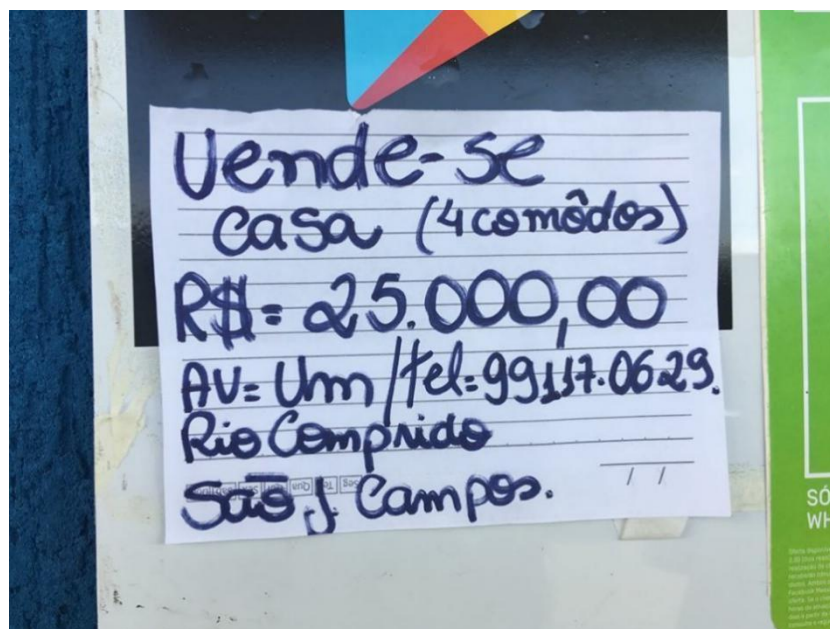 Vende-se
casa (4 comôdos)
R$= 25.000,00
AV= Um / tel=99117.0629.
Rio Comprido
São J. Campos.
/ /
SÓ
WH